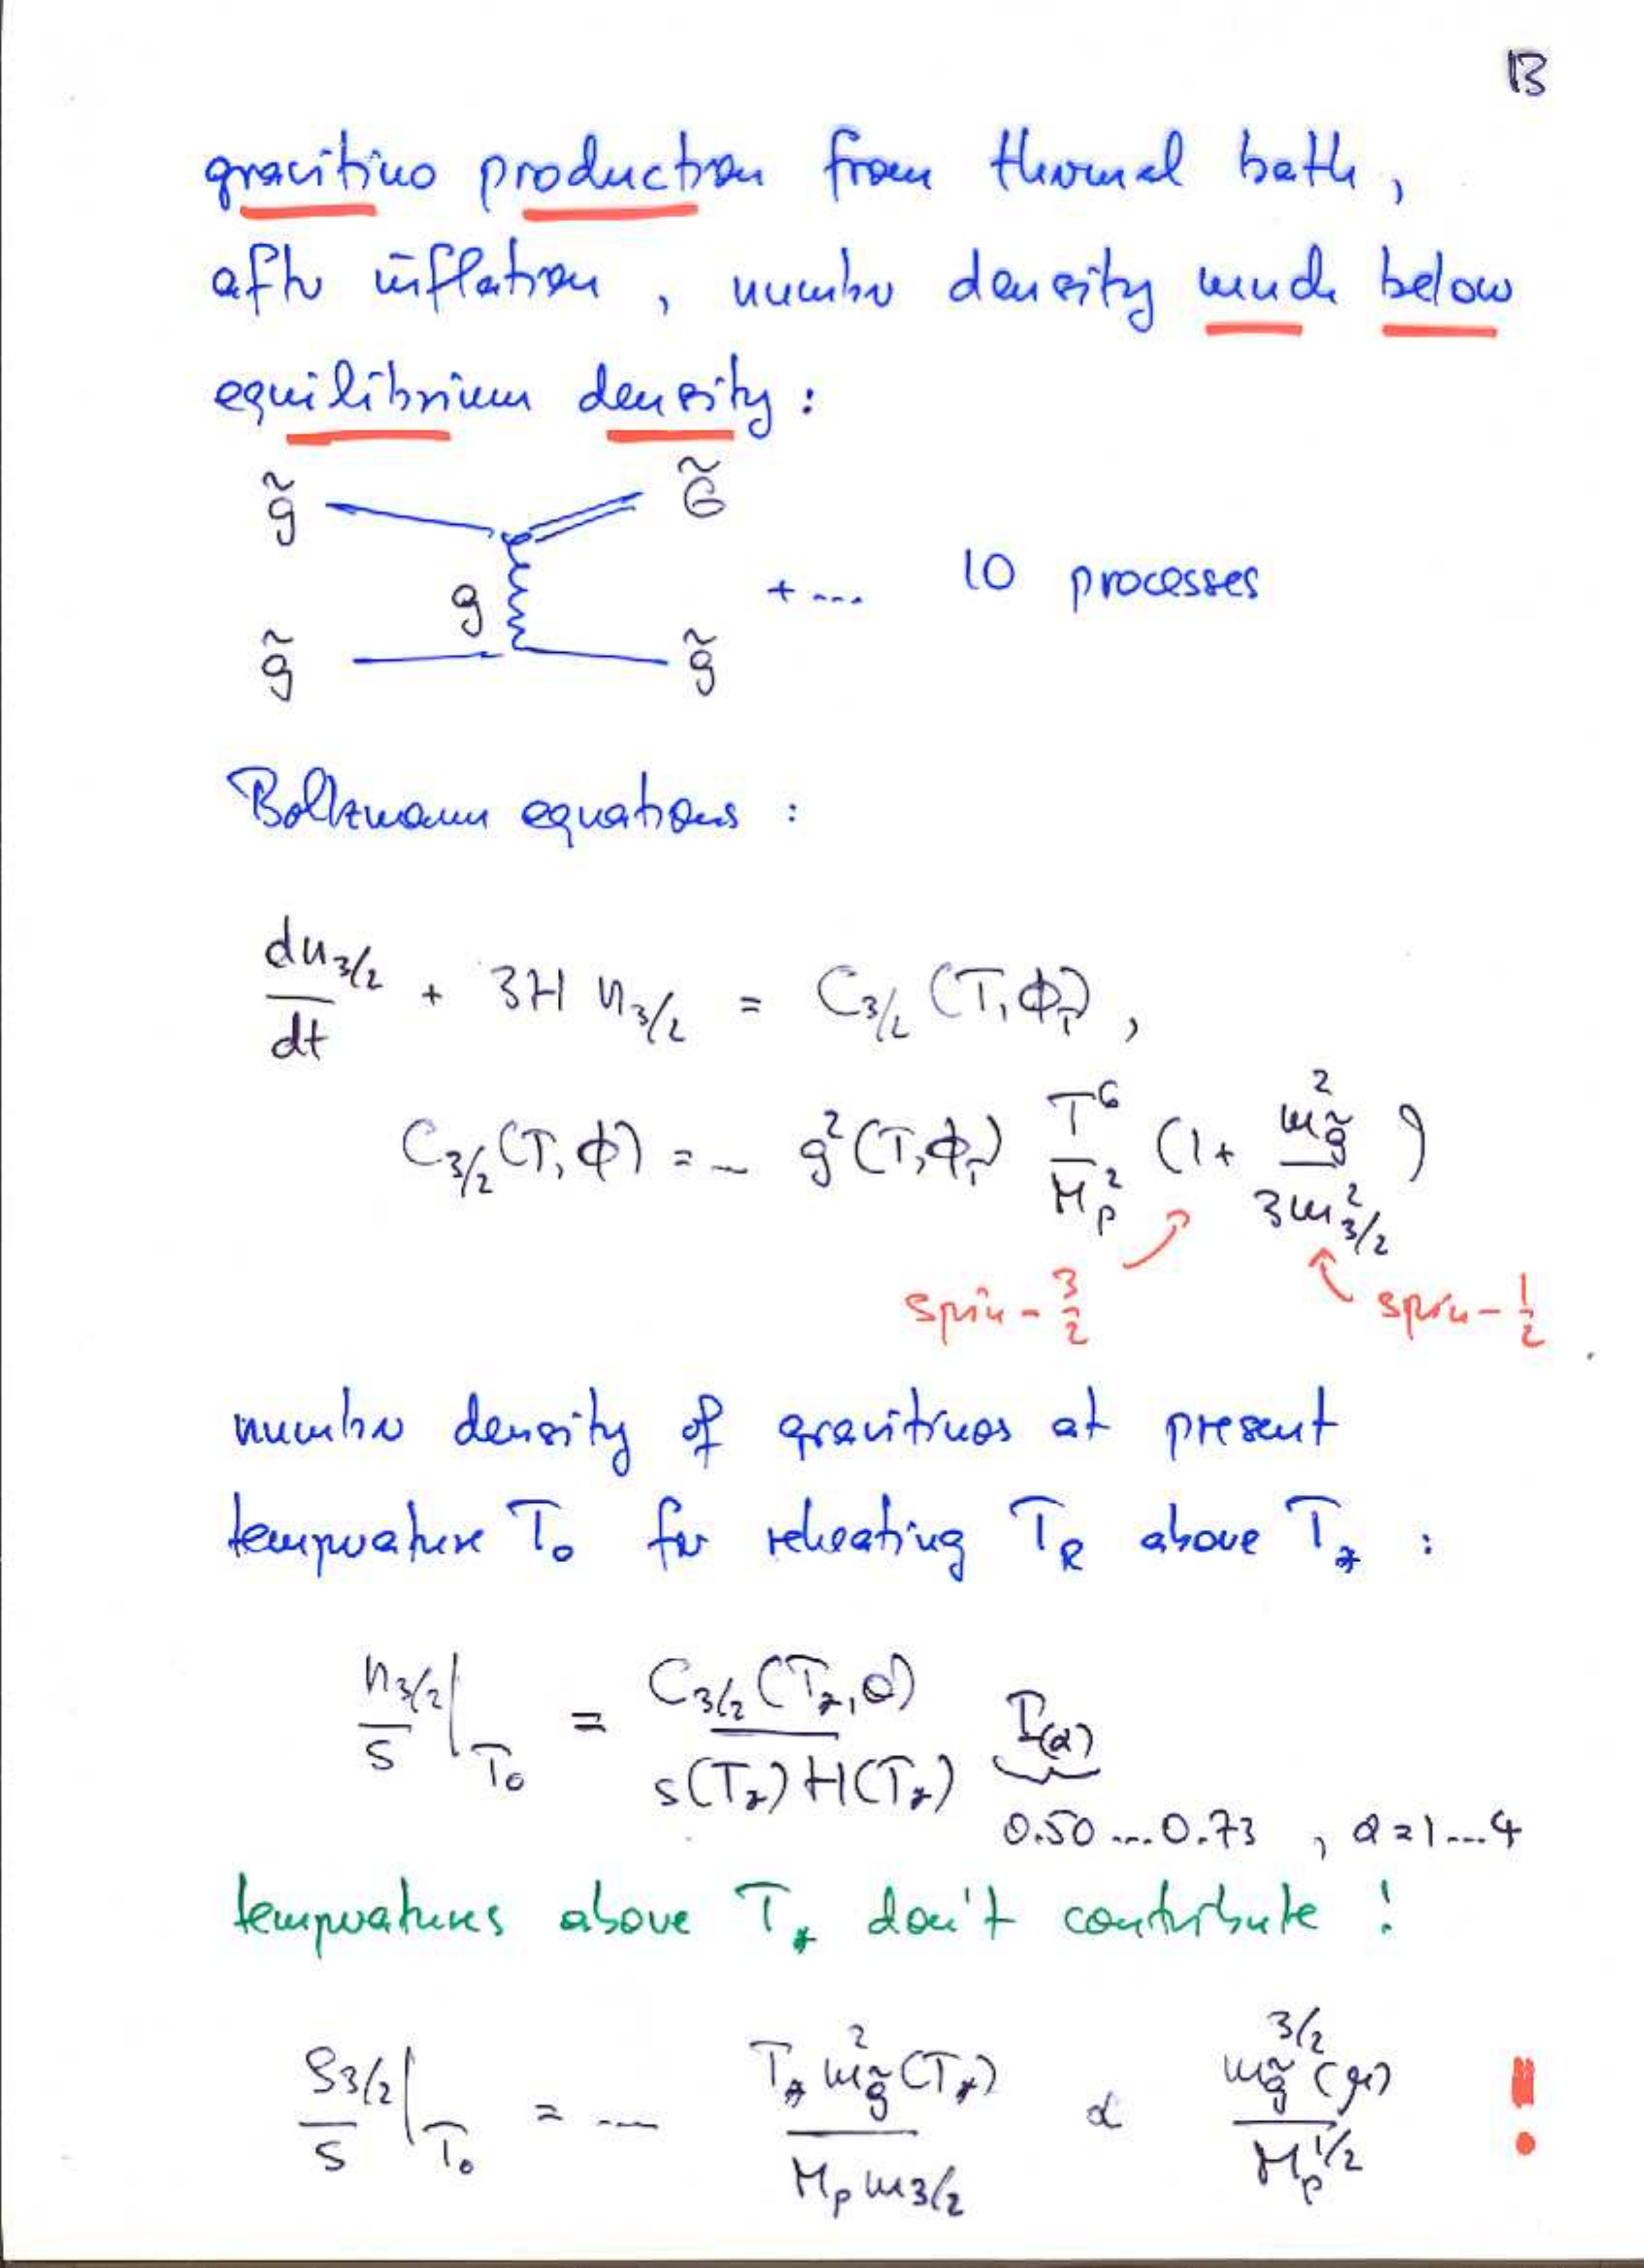 13
gravitino production from thermal bath,
after inflation, number density much below
equilibrium density:
g̃ G̃
g + ... 10 processes
g̃ g̃
Boltzmann equations :
dn_{3/2}/dt + 3H n_{3/2} = C_{3/2} (T, ϕ_T) ,
C_{3/2} (T, ϕ) = ... g²(T, ϕ_T) T⁶/M_p² (1 + m_g̃²/3m_{3/2}²)
spin - 3/2 spin - 1/2
number density of gravitinos at present
temperature T₀ for reheating T_R above T_* :
n_{3/2}/s |_{T₀} = C_{3/2}(T_*, 0)/s(T_*) H(T_*) I(α)
0.50 ... 0.73 , α = 1 ... 4
temperatures above T_* don't contribute !
ρ_{3/2}/s |_{T₀} = ... T_* m_g̃²(T_*)/M_p m_{3/2} ∝ m_g̃^{3/2}(μ)/M_p^{1/2} !